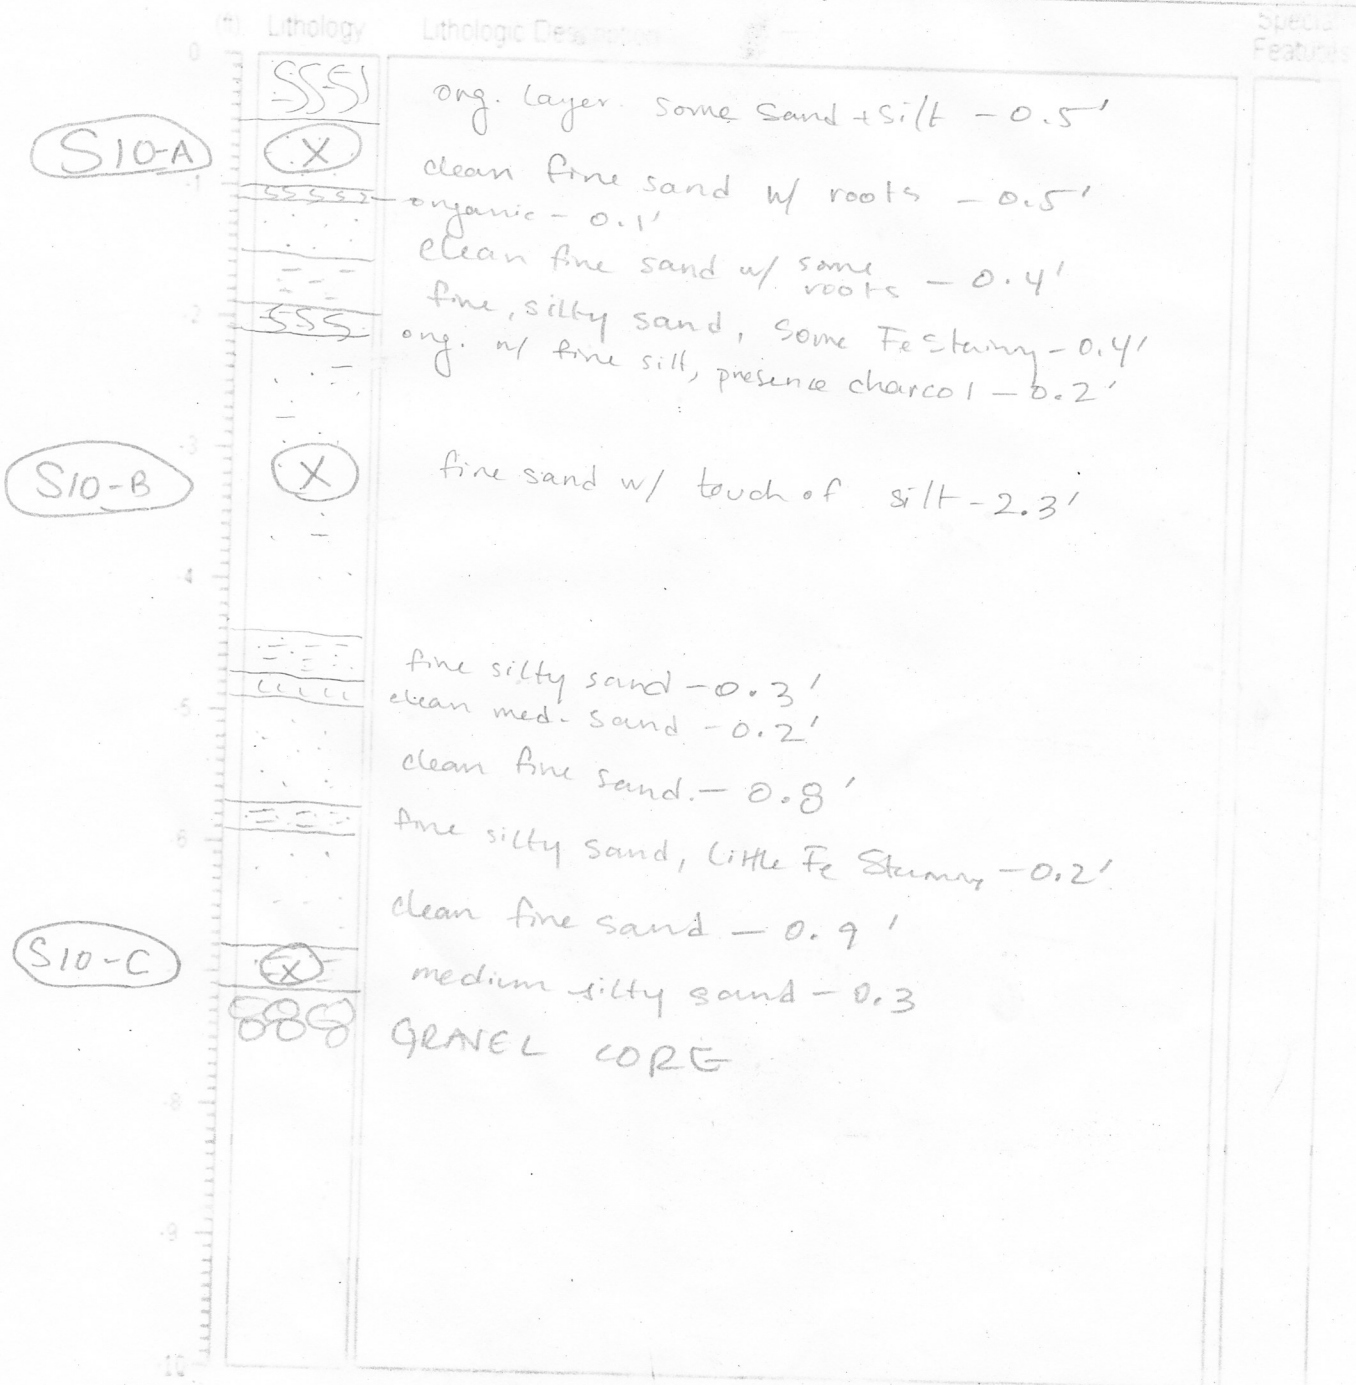 (ft) Lithology Lithologic Description Special
Features
0
SSSS org. layer. some sand + silt - 0.5'
S10-A X
clean fine sand w/ roots - 0.5'
-1
SSSSS organic - 0.1'
clean fine sand w/ some roots - 0.4'
fine, silty sand, some Fe Staining - 0.4'
-2
SSS org. w/ fine silt, presence charcol - 0.2'
-3
S10-B X fine sand w/ touch of silt - 2.3'
-4
fine silty sand - 0.3'
clean med. sand - 0.2'
-5
clean fine sand. - 0.8'
fine silty sand, little Fe Staining - 0.2'
-6
clean fine sand - 0.9'
S10-C X medium silty sand - 0.3
GRAVEL CORE
-8
-9
-10